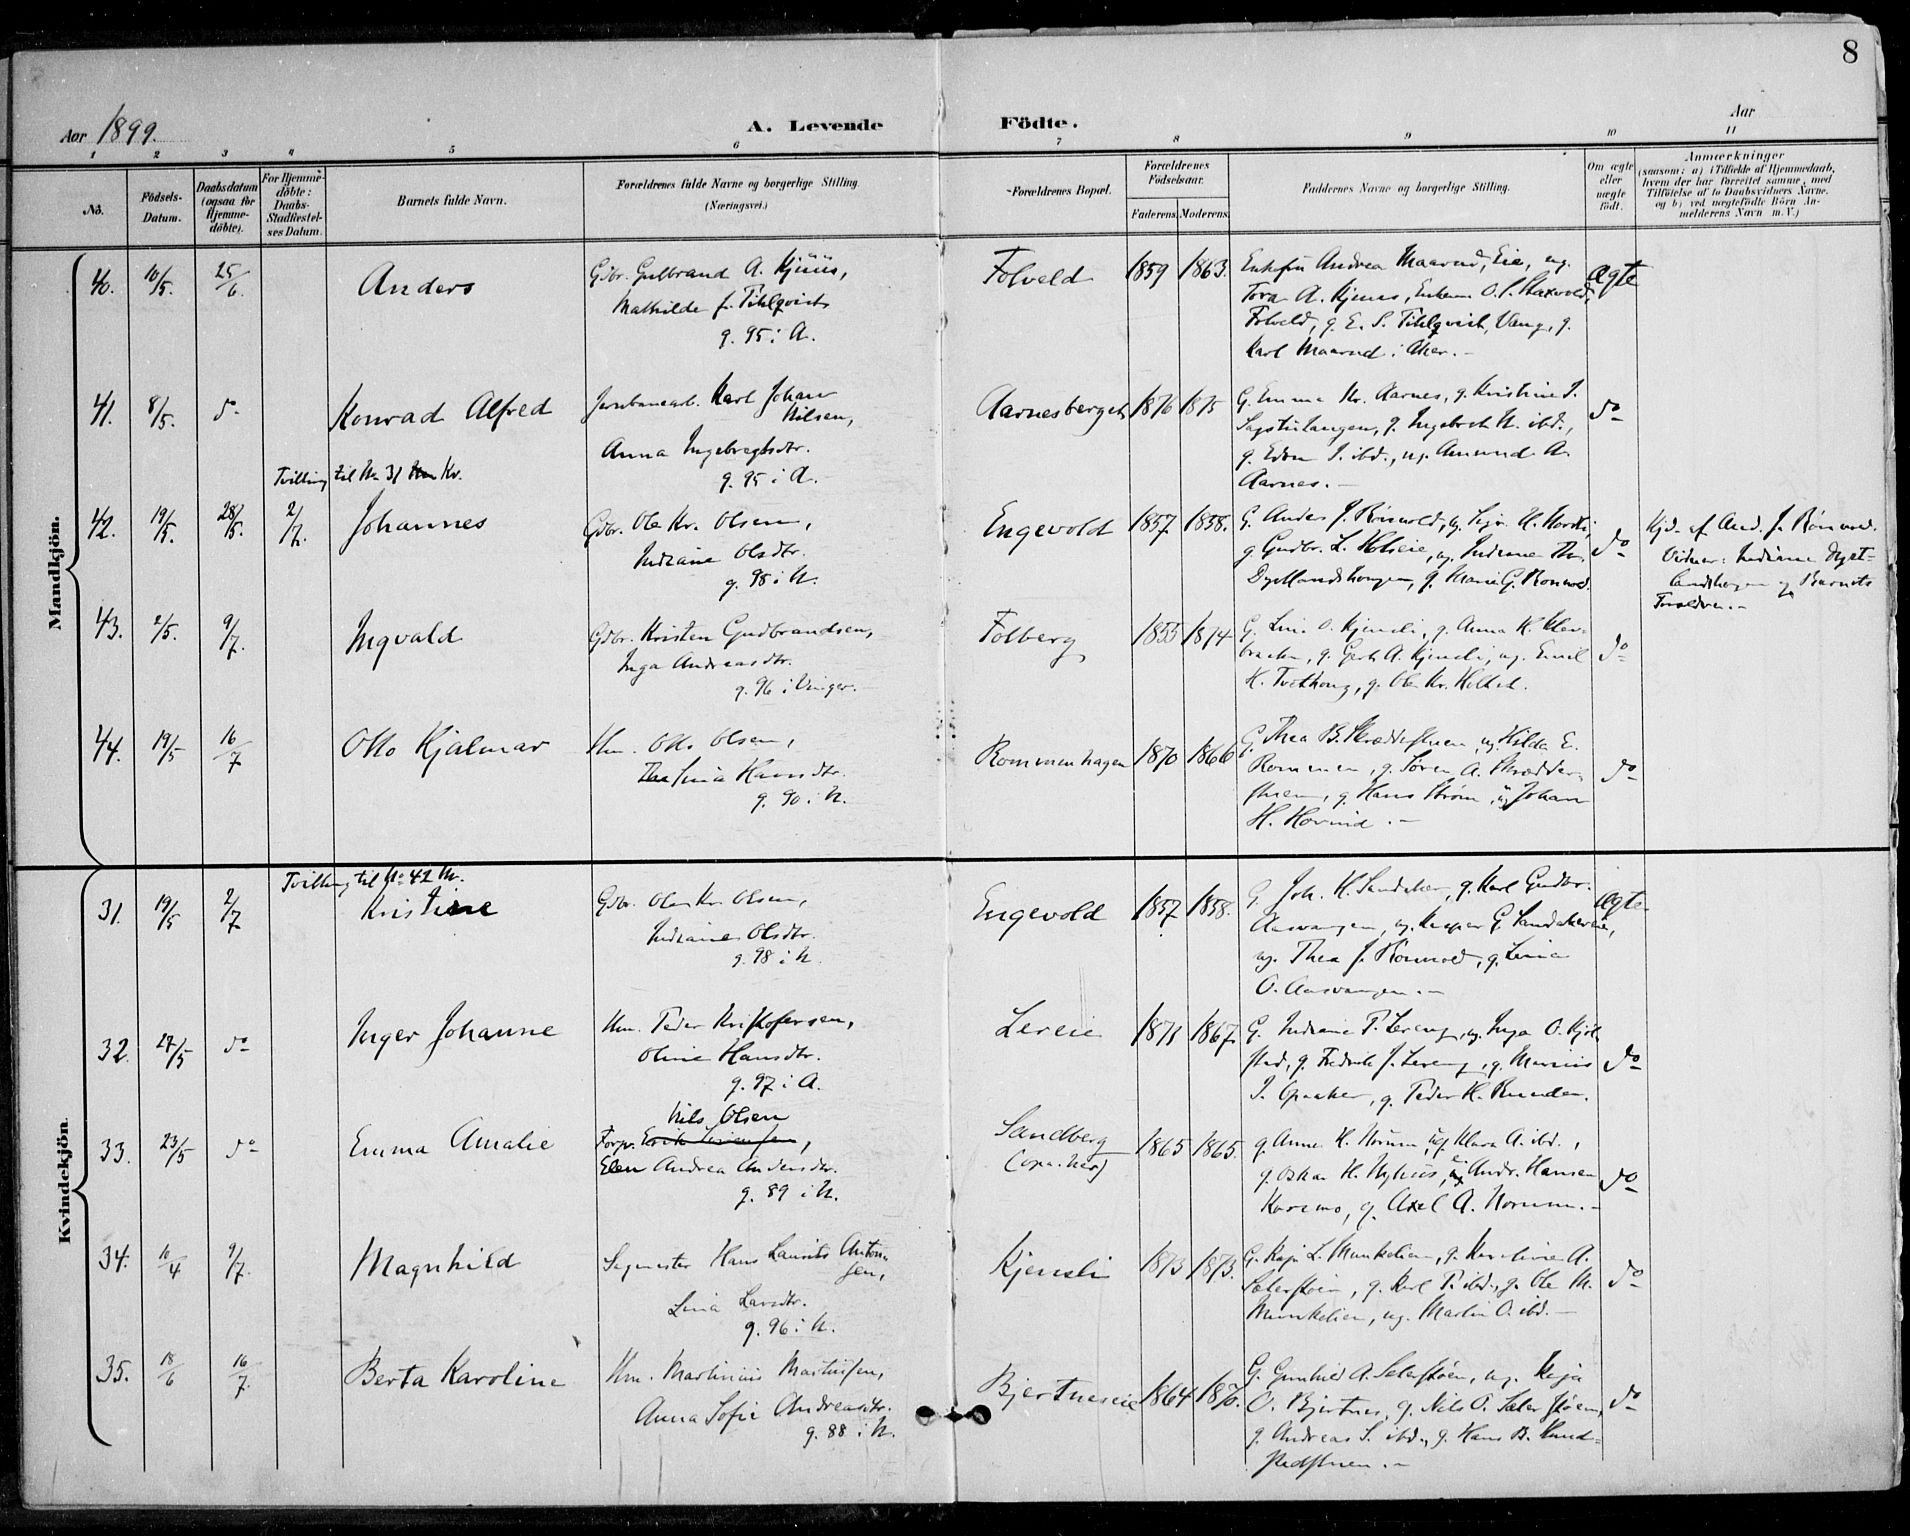 8
Aar 1899.
A. Levende Födte.
Aar
1 2 3 4 5 6 7 8 9 10 11
No.
Födsels-Datum.
Daabsdatum (ogsaa for Hjemme-döbte).
For Hjemme-döbte: Daabs-Stadfæstel-ses Datum.
Barnets fulde Navn.
Forældrenes fulde Navne og borgerlige Stilling.
(Næringsvei.)
Forældrenes Bopæl.
Forældrenes Födselsaar.
Faderens. Moderens.
Faddernes Navne og borgerlige Stilling.
Om ægte eller uægte födt.
Anmærkninger
(saasom: a) i Tilfælde af Hjemmedaab, hvem der har forrettet samme, med Tilföielse af to Daabsvidners Navne, og b) ved uægtefödte Börn An-melderens Navn m. V.)
Mandkjön.
40. 10/5. 25/6. Anders
Gdbr. Gulbrand A. Kjüüs,
Mathilde f. Tihlqvist
g. 95 i A.
Folveld 1859 1863.
Andrea Maarud, Eie, ug.
Tora A. Kjuus,
Folveld, g. E. S. Tihlqvist, Vang, g.
Karl Maarud i Aker.
ægte
41. 8/5. do Konrad Alfred
Jernbanearb. Karl Johan
Nilsen,
Anna Ingebregtsdtr.
g. 95 i A.
Aarnesberget 1876 1875
G. Emma Kr. Aarnes, g. Kristine J.
Sagstulangen, g. Ingebret N. ibd.,
g. Edvin J. ibd., ug. Amund A.
Aarnes.
do
Tvilling til No 31 Kv.
42. 19/5. 28/5. 2/7. Johannes
Gdbr. Ole Kr. Olsen,
Indiane Olsdtr.
g. 98 i N.
Engevold 1857 1858.
G. Anders J. Rönvold, ug.
g. Gudbr. L. Holseie, ug. Indiane
g. Marie G. Ronvold.
do
Hjd. af And. J. Rönvold.
Vidner: Indiane Dyst-
landshagen og Barnets
Forældre.
43. 2/5. 9/7. Ingvald
Gdbr. Kristen Gudbrandsen,
Inga Andreasdtr.
g. 96 i Vinger.
Folberg 1855 1874
G. Lina O. Kjensli, g. Anna K.
A. Kjensli, ug. Emil
g. Ole Kr.
do
44. 19/5 16/7 Otto Hjalmar
Hm. Otto Olsen,
Lina Hansdtr.
g. 90 i N.
Rommenhagen 1870 1866
G. Thea B. Skredderstuen, ug. Hilda E.
Rommen, g. Søren A. Skrædder-
stuen, g. Hans Strøm, ug Johan
H. Horund.
do
Kvindekjön.
Tvilling til No 42 M.
31. 19/5 2/7 Kristine
Gdbr. Ole Kr. Olsen,
Indiane Olsdtr.
g. 98 i N.
Engevold 1857 1858.
G. Joh. H. Sandaker, g. Karl Gudbr.
Aasvangen, ug. Kasper G. Sandakereie,
ug. Thea J. Rönvold, g. Lina
O. Aasvangen.
ægte
32. 27/5 do Inger Johanne
Hm. Peder Kristofersen,
Oline Hansdtr.
g. 97 i A.
Lereie 1871 1867.
G. Indiane P. Lereng, ug. Inga O.
g. Fredrik J. Lereng, g. Marius
J. Opaker, g. Peder K.
do
33. 23/5 do Emma Amalie
Nils Olsen
Forpr.
Elen Andrea Andersdtr.
g. 89 i N.
Sandberg
1865 1865.
g. Anne H. Norum, ug Klara A. ibd.,
g. Oskar H. Nyhus, ug Andr. Hansen
g. Axel A. Norum.
do
34. 10/4 9/7. Magnhild
Sagmester Hans Laurits Anton-
sen,
Lina Larsdtr.
g. 96 i N.
Kjensli 1873 1873.
G. Kaja L. Munkelien, g. Karoline A.
Seterstøen, g. Karl P. ibd., g. Ole M.
Munkelien, ug. Martin O. ibd.
do
35. 18/6 16/7. Berta Karoline
Hm. Martinius Martinsen,
Anna Sofie Andreasdtr.
g. 88 i N.
Bjertneseie 1864 1870.
G. Gunhild A. Seterstøen, ug. Kaja
O. Bjertnes, g. Nils O. Seterstøen,
g. Andreas S. ibd., g. Hans B.
do